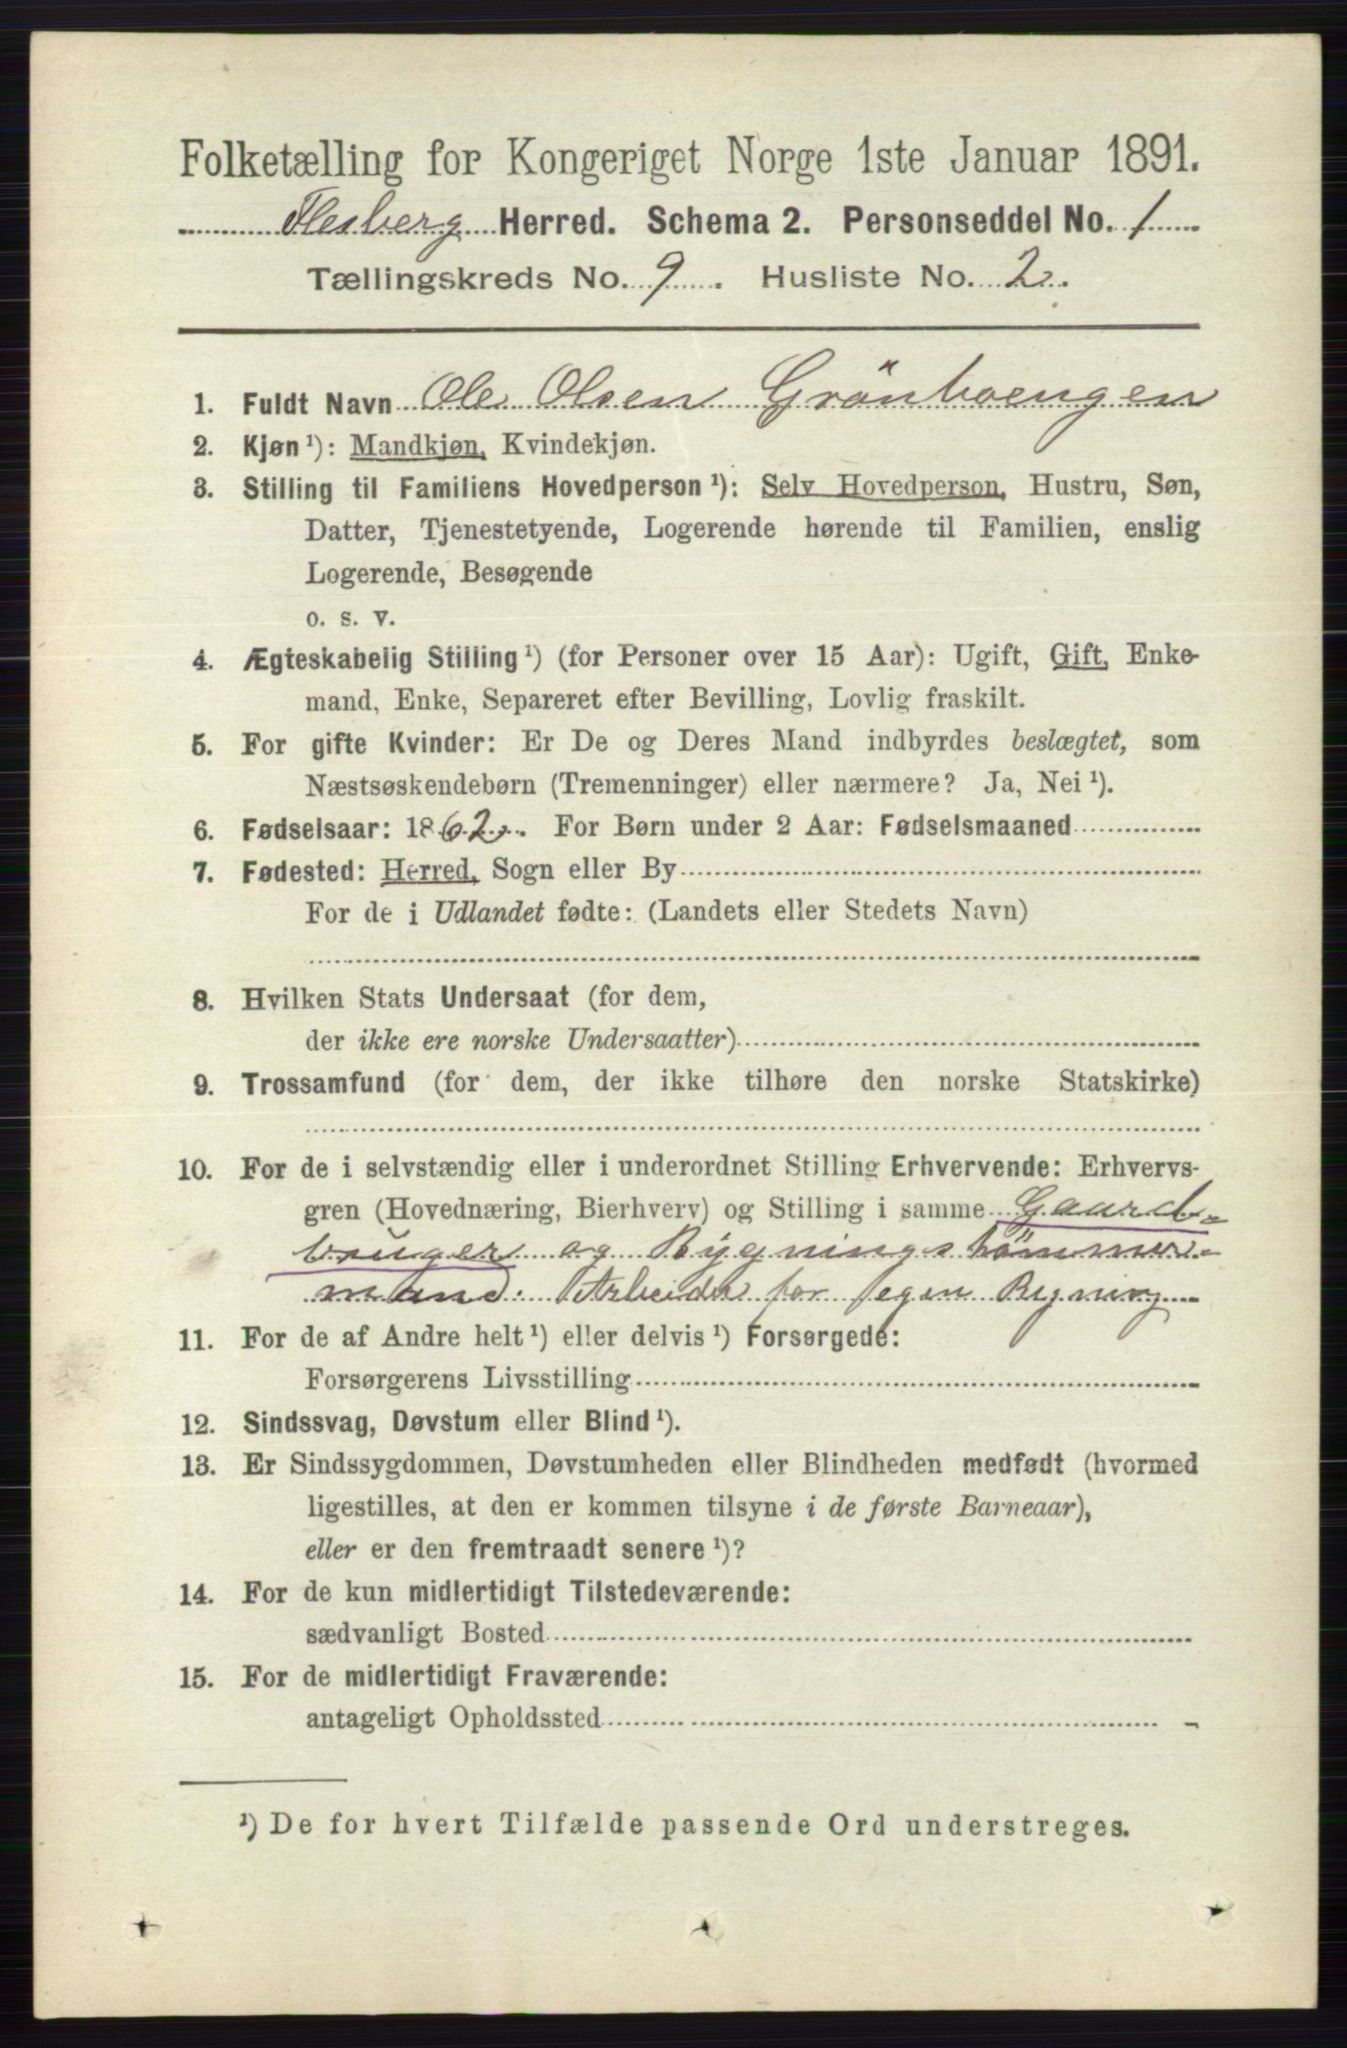 Folketælling for Kongeriget Norge 1ste Januar 1891.
Flesberg Herred. Schema 2. Personseddel No. 1
Tællingskreds No. 9. Husliste No. 2.
1. Fuldt Navn Ole Olsen Grönboengen
2. Kjøn ¹): Mandkjøn, Kvindekjøn.
3. Stilling til Familiens Hovedperson ¹): Selv Hovedperson, Hustru, Søn,
Datter, Tjenestetyende, Logerende hørende til Familien, enslig
Logerende, Besøgende
o. s. v.
4. Ægteskabelig Stilling ¹) (for Personer over 15 Aar): Ugift, Gift, Enke-
mand, Enke, Separeret efter Bevilling, Lovlig fraskilt.
5. For gifte Kvinder: Er De og Deres Mand indbyrdes beslægtet, som
Næstsøskendebørn (Tremenninger) eller nærmere? Ja, Nei ¹).
6. Fødselsaar: 1862. For Børn under 2 Aar: Fødselsmaaned
7. Fødested: Herred, Sogn eller By
For de i Udlandet fødte: (Landets eller Stedets Navn)
8. Hvilken Stats Undersaat (for dem,
der ikke ere norske Undersaatter)
9. Trossamfund (for dem, der ikke tilhøre den norske Statskirke)
10. For de i selvstændig eller i underordnet Stilling Erhvervende: Erhvervs-
gren (Hovednæring, Bierhverv) og Stilling i samme Gaard-
bruger og Bygningstömmer-
mand. Arbeider for egen Regning
11. For de af Andre helt ¹) eller delvis ¹) Forsørgede:
Forsørgerens Livsstilling
12. Sindssvag, Døvstum eller Blind ¹).
13. Er Sindssygdommen, Døvstumheden eller Blindheden medfødt (hvormed
ligestilles, at den er kommen tilsyne i de første Barneaar),
eller er den fremtraadt senere ¹)?
14. For de kun midlertidigt Tilstedeværende:
sædvanligt Bosted
15. For de midlertidigt Fraværende:
antageligt Opholdssted
¹) De for hvert Tilfælde passende Ord understreges.